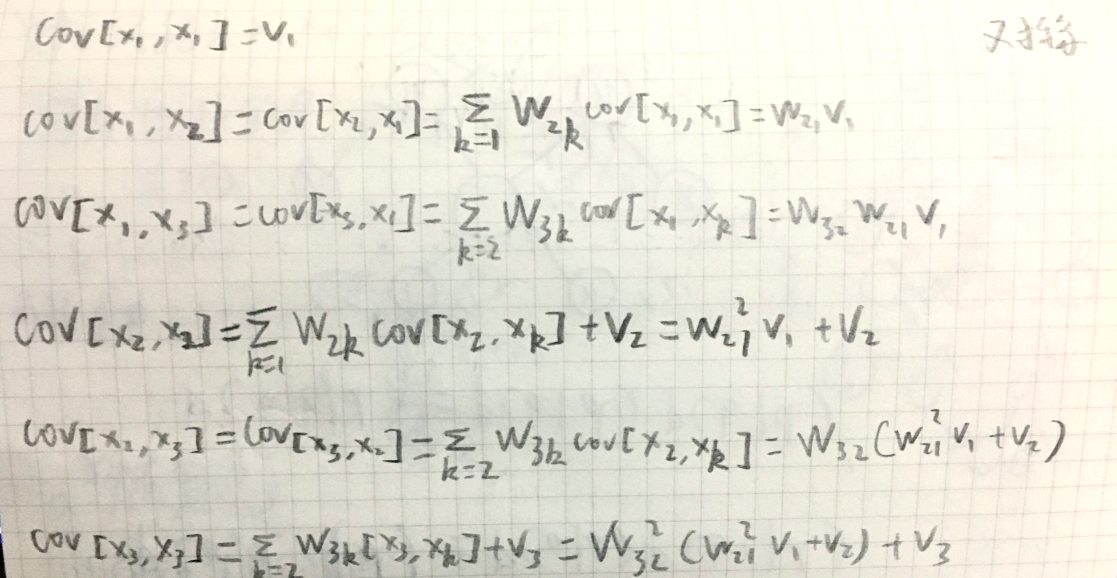 cov[x₁, x₁] = v₁
对称
cov[x₁, x₂] = cov[x₂, x₁] = Σ_{k=1} W₂ₖ cov[x₁, x₁] = W₂₁ v₁
cov[x₁, x₃] = cov[x₃, x₁] = Σ_{k=2} W₃ₖ cov[x₁, xₖ] = W₃₂ W₂₁ v₁
cov[x₂, x₂] = Σ_{k=1} W₂ₖ cov[x₂, xₖ] + v₂ = W₂₁² v₁ + v₂
cov[x₂, x₃] = cov[x₃, x₂] = Σ_{k=2} W₃ₖ cov[x₂, xₖ] = W₃₂ (W₂₁² v₁ + v₂)
cov[x₃, x₃] = Σ_{k=2} W₃ₖ [x₃, xₖ] + v₃ = W₃₂² (W₂₁² v₁ + v₂) + v₃